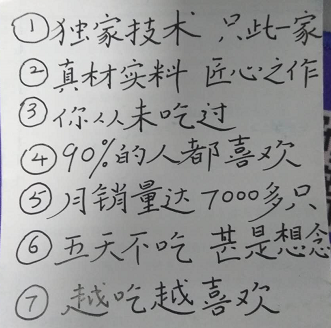 ①独家技术 只此一家
②真材实料 匠心之作
③你从未吃过
④90%的人都喜欢
⑤月销量达7000多只
⑥五天不吃 甚是想念
⑦越吃越喜欢